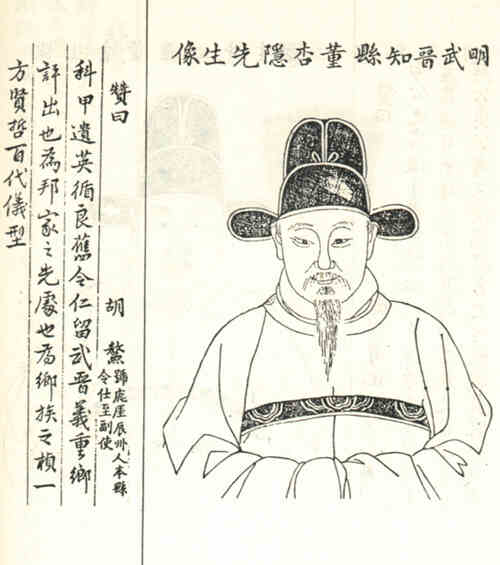 明武晉知縣董杏隱先生像
贊曰
胡鰲
號鹿崖辰州人本縣
令仕至副使
科甲遺英循良舊令仁留武晉義重鄉
評出也為邦家之光處也為鄉族之楨一
方賢哲百代儀型